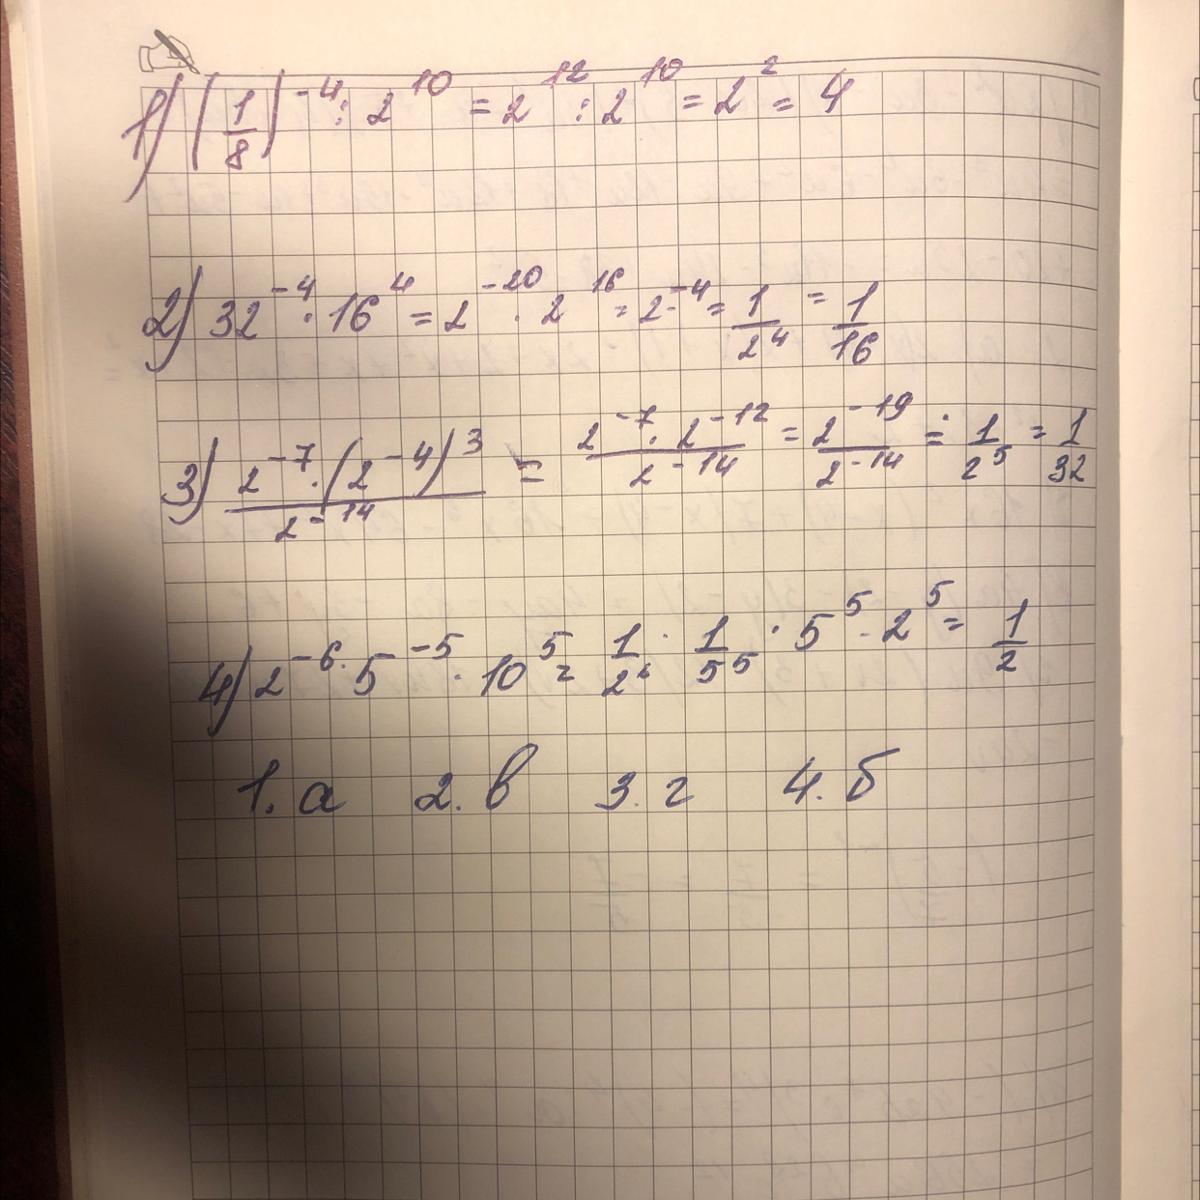 1) (1/8)^-4 : 2^10 = 2^12 : 2^10 = 2^2 = 4
2) 32^-4 · 16^4 = 2^-20 · 2^16 = 2^-4 = 1/2^4 = 1/16
3) 2^-7 · (2^-4)^3 / 2^-14 = 2^-7 · 2^-12 / 2^-14 = 2^-19 / 2^-14 = 1/2^5 = 1/32
4) 2^-6 · 5^-5 · 10^5 = 1/2^6 · 1/5^5 · 5^5 · 2^5 = 1/2
1. а 2. в 3. г 4. б